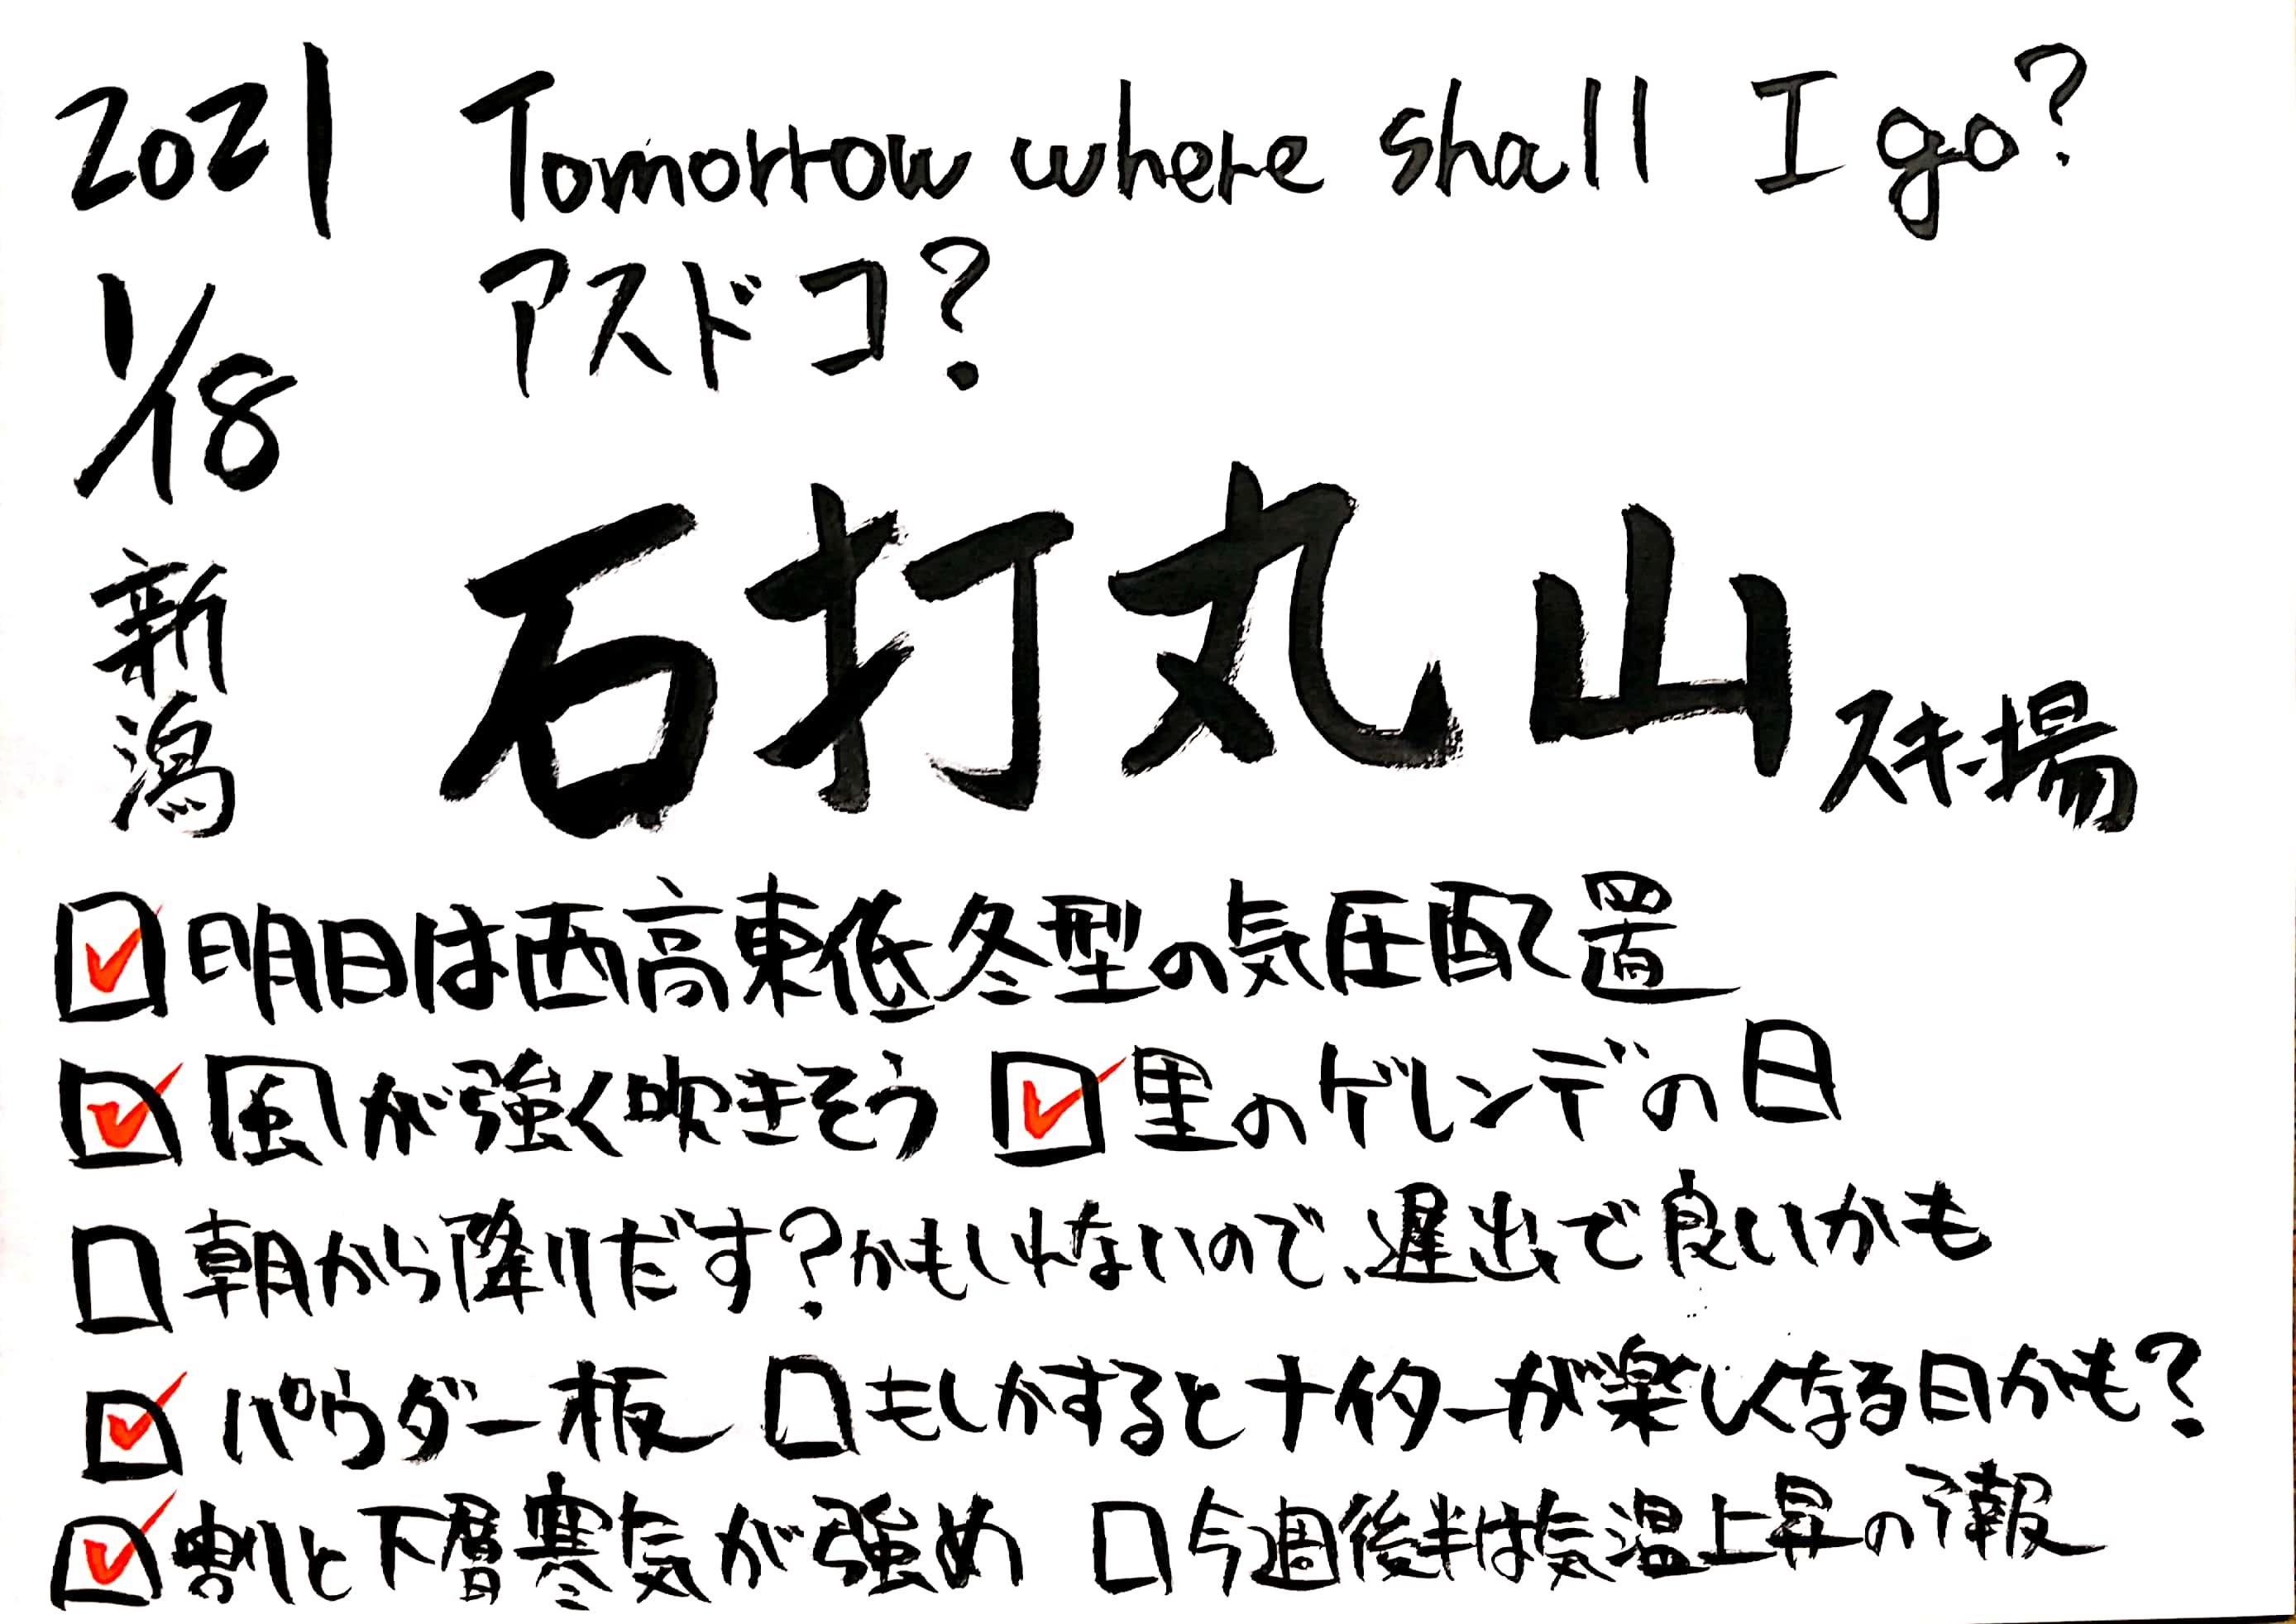 2021 Tomorrow where shall I go?
アスドコ?
1/18
新潟
石打丸山スキー場
☑明日は西高東低冬型の気圧配置
☑風が強く吹きそう ☑里のゲレンデの日
☐朝から降りだす?かもしれないので、遅出で良いかも
☑パウダー板 ☐もしかするとナイターが楽しくなる日かも?
☑割と下層寒気が強め ☐今週後半は気温上昇の予報